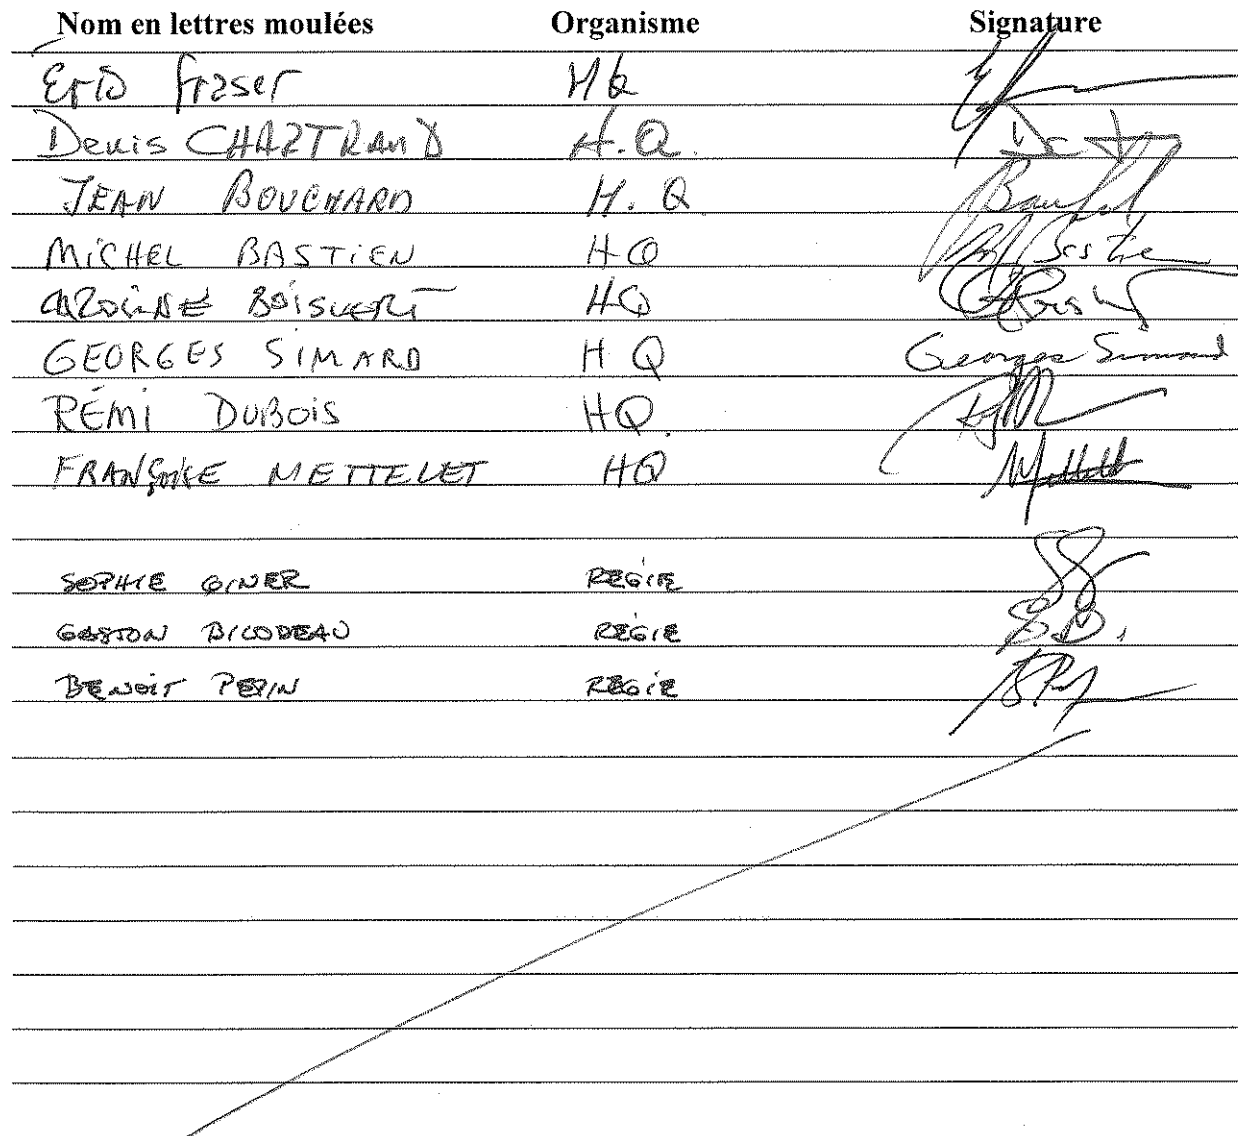 Nom en lettres moulées Organisme Signature
Eric Fraser HQ
Denis CHARTRAND H.Q.
JEAN BOUCHARD H.Q.
MICHEL BASTIEN HQ Bastien
CAROLINE BOISVERT HQ
GEORGES SIMARD HQ Georges Simard
RÉMI DUBOIS HQ
FRANÇOISE METTELET HQ
SOPHIE GINER RÉGIE
GASTON BILODEAU RÉGIE
BENOIT PEPIN RÉGIE